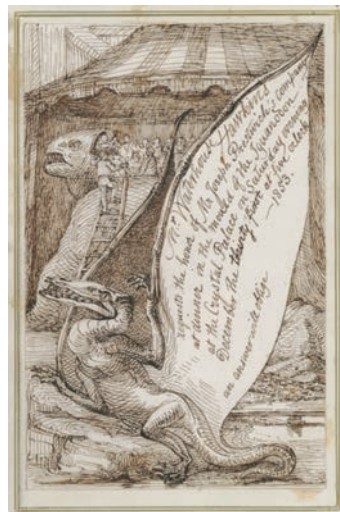 Mr. Waterhouse Hawkins
requests the honor of Mr Joseph Prestwich's company
at dinner in the mould of the Iguanodon
at the Crystal Palace on Saturday evening
December the thirty first at five o'clock
—1853.
an answer will oblige